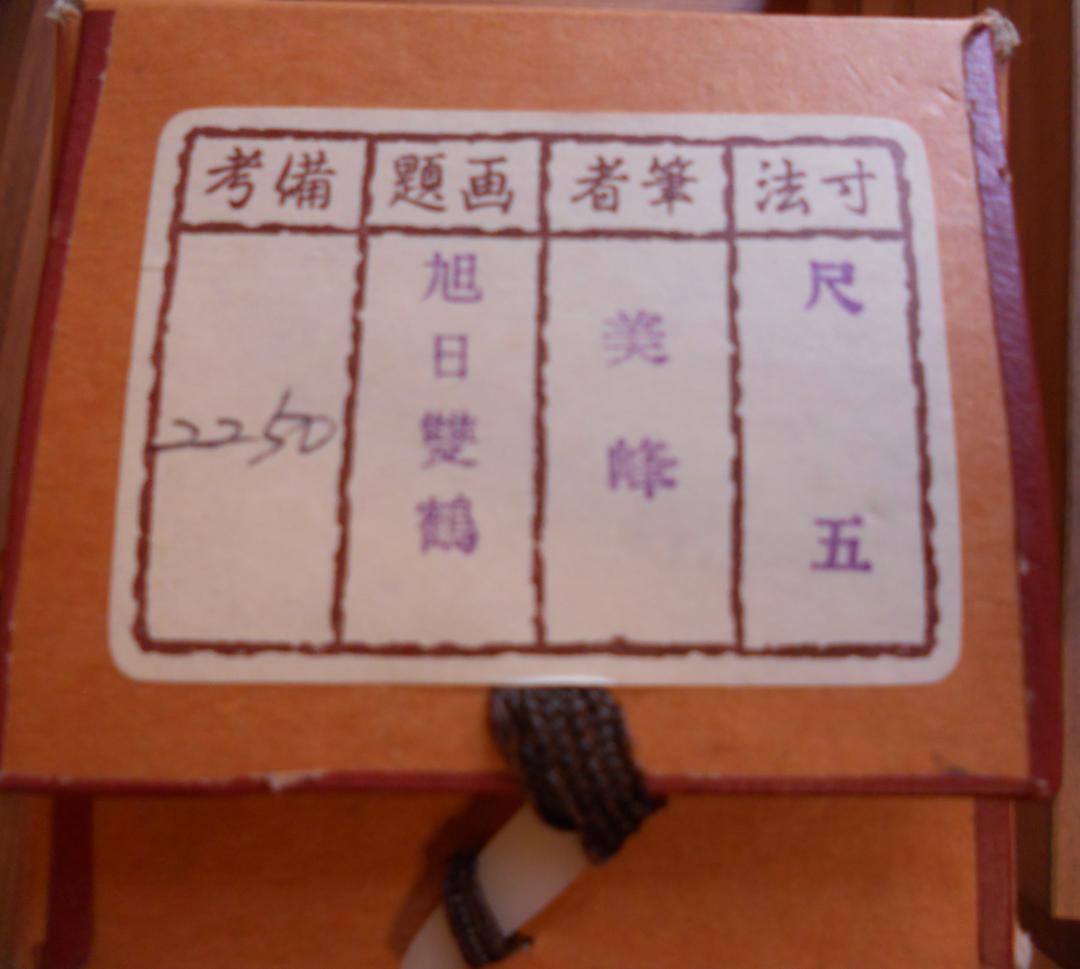 寸法
尺五
筆者
美峰
画題
旭日雙鶴
備考
2250